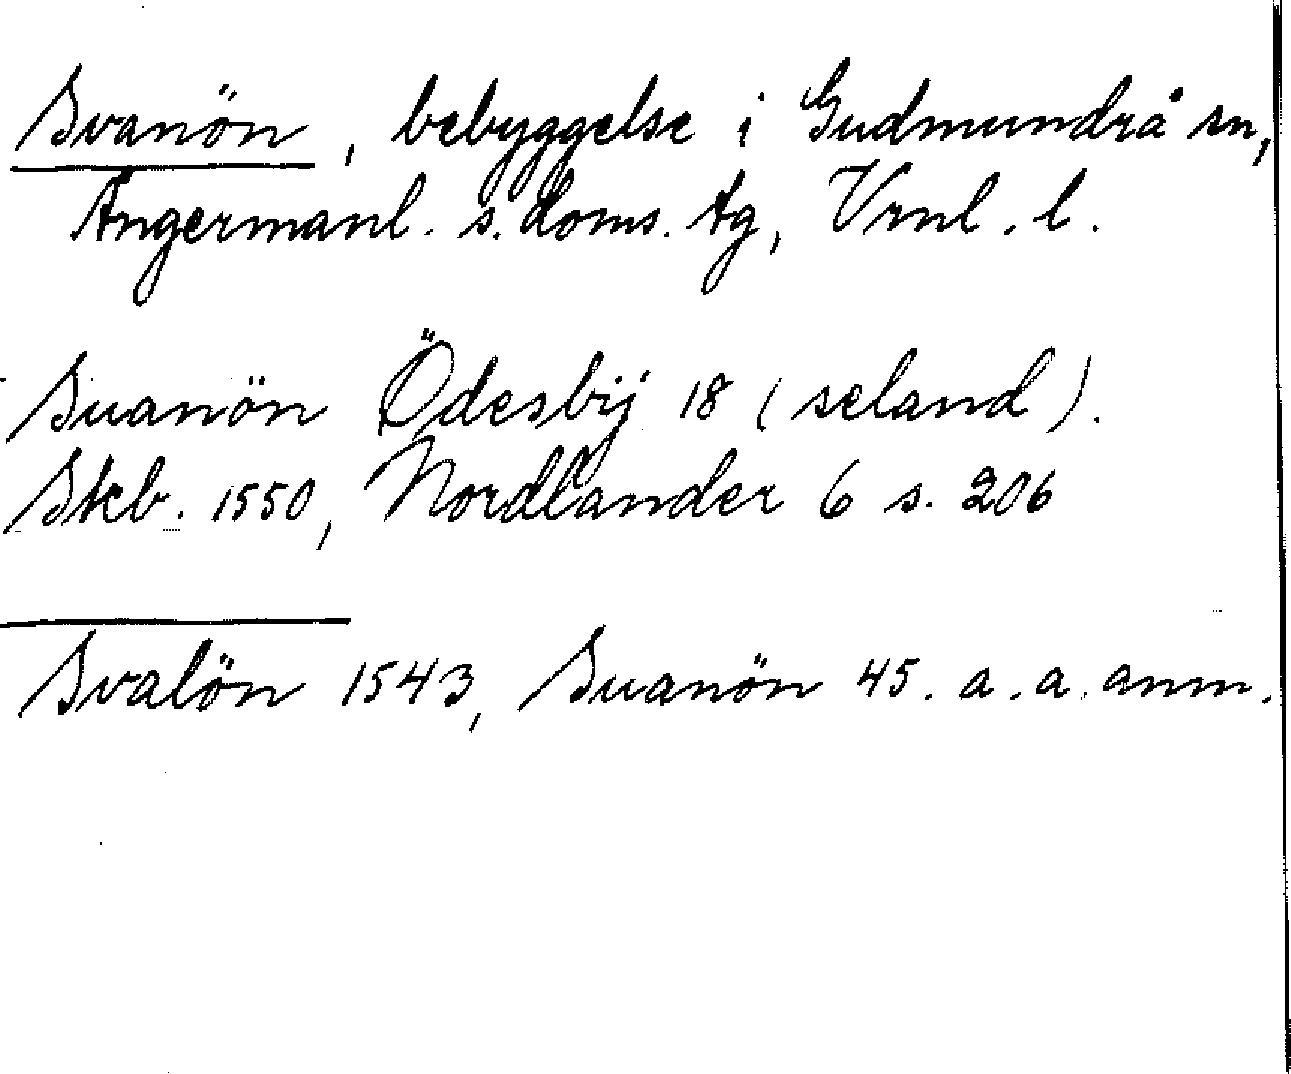 Svanön, bebyggelse i Gudmundrå sn,
Ångermanl. s. doms. tg, Vrnl. l.
Suanön Ödesbÿ 18 (seland).
Skb. 1550, Nordlander 6 s. 206
Svalön 1543, Suanön 45. a. a. anm.